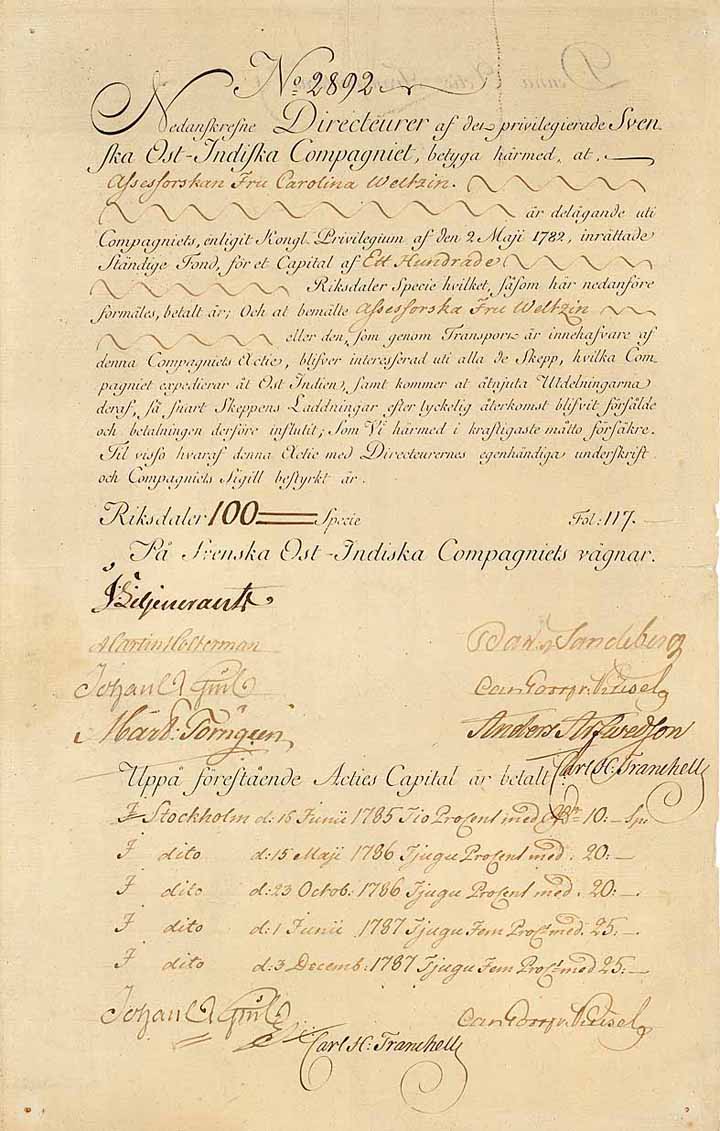 No. 2892
Nedanskrefne Directeurer af det privilegierade Sven-
ska Ost-Indiska Compagniet, betyga härmed, at,
Assessorskan Fru Carolina Weltzin.
är delägande uti
Compagniets, enligit Kongl. Privilegium af den 2 Maji 1782, inrättade
Ständige Fond, för et Capital af Ett Hundrade
Riksdaler Specie hvilket, såsom här nedanföre
förmäles, betalt är; Och at bemälte Assessorska Fru Weltzin
eller den, som genom Transport är innehafvare af
denna Compagniets Actie, blifver interesserad uti alla de Skepp, hvilka Com-
pagniet expedierar åt Ost Indien, samt kommer at åtnjuta Utdelningarna
deraf, så snart Skeppens Laddningar efter lyckelig återkomst blifvit försålde
och betalningen derföre influtit; Som Vi härmed i kraftigaste måtto försäkre.
Til visso hvaraf denna Actie med Directeurernes egenhändiga underskrift
och Compagniets Sigill bestyrkt är.
Riksdaler 100 Specie Fol: 117.
På Svenska Ost-Indiska Compagniets vägnar.
Martin Holterman
Dav. Sandeberg
Johan
Mart: Törngren
Anders Arfwedson
Carl H: Tranchell
Uppå förestående Acties Capital är betalt
I Stockholm d: 16 Junii 1785 Tio Procent med 10:— Sp:
I dito d: 15 Maji 1786 Tjugu Procent med. 20:—
I dito d: 23 Octob: 1786 Tjugu Procent med. 20:—
I dito d: 1 Junii 1787 Tjugu Fem Proc:t med. 25:—
I dito d: 3 Decemb: 1787 Tjugu Fem Proc:t med 25:—
Johan
Carl H: Tranchell